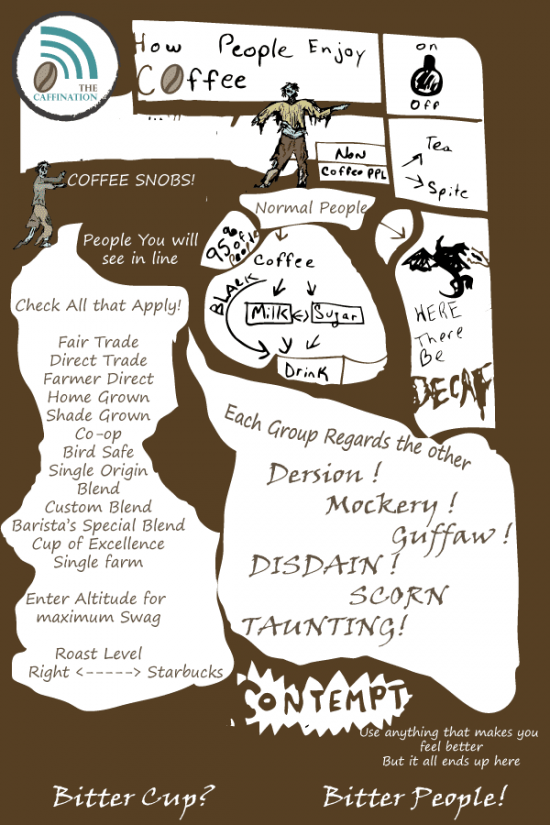 THE
CAFFINATION
How People Enjoy
Coffee
on
Off
Tea
Spite
Non
Coffee PPL
COFFEE SNOBS!
People You will
see in line
Check All that Apply!
Fair Trade
Direct Trade
Farmer Direct
Home Grown
Shade Grown
Co-op
Bird Safe
Single Origin
Blend
Custom Blend
Barista's Special Blend
Cup of Excellence
Single farm
Enter Altitude for
maximum Swag
Roast Level
Right <-----> Starbucks
Normal People
95%
of
People
Coffee
BLACK
Milk <-> Sugar
Drink
HERE
There
Be
DECAF
Each Group Regards the other
Dersion !
Mockery !
Guffaw !
DISDAIN !
SCORN
TAUNTING!
CONTEMPT
Use anything that makes you
feel better
But it all ends up here
Bitter Cup? Bitter People!